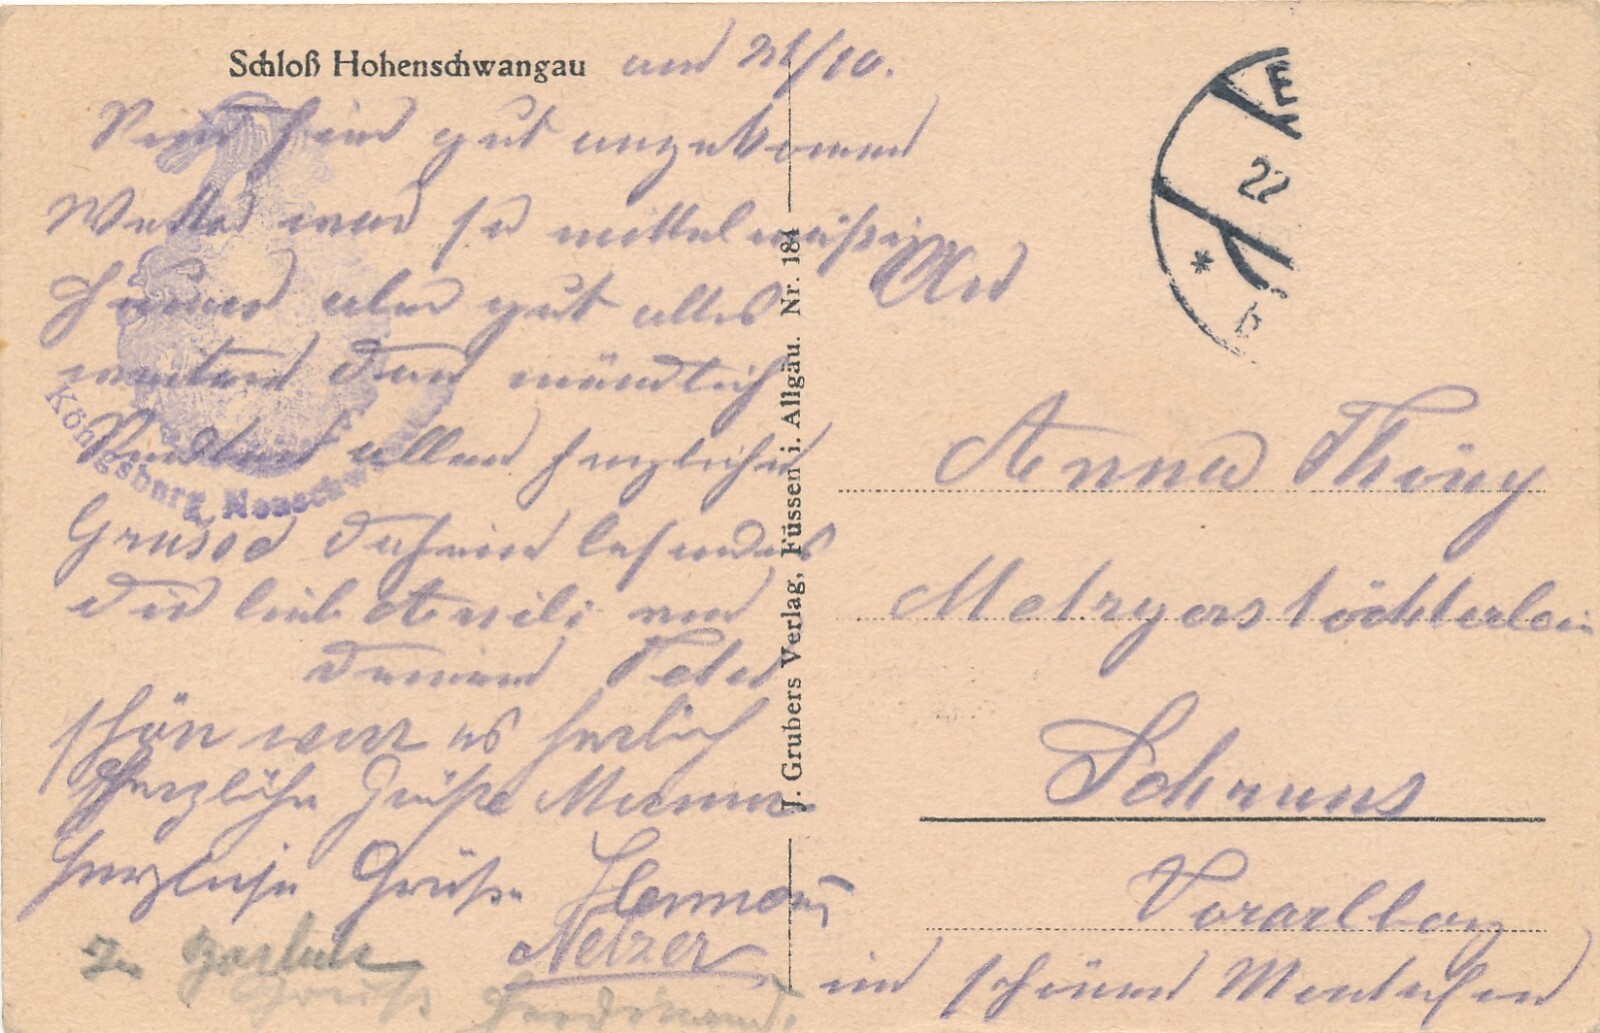 Schloß Hohenschwangau am 21/10.
sind gut angekommen
Wetter war so mittelmäßig
aber gut alles
weitere dan mündlich
allen herzliche
Grüsse daheim
die liebe von
deinem Peter
schön war es herlich
Herzliche Grüße Mamma
herzliche Grüße Herman
Netzer
Grüße Ferdinand.
Königsburg Neuschw
J. Grubers Verlag, Füssen i. Allgäu. Nr. 184
E
22
* b
An
Anna Thöny
Metzgerstöchterlein
Schruns
Vorarlberg
im schönen Montafon